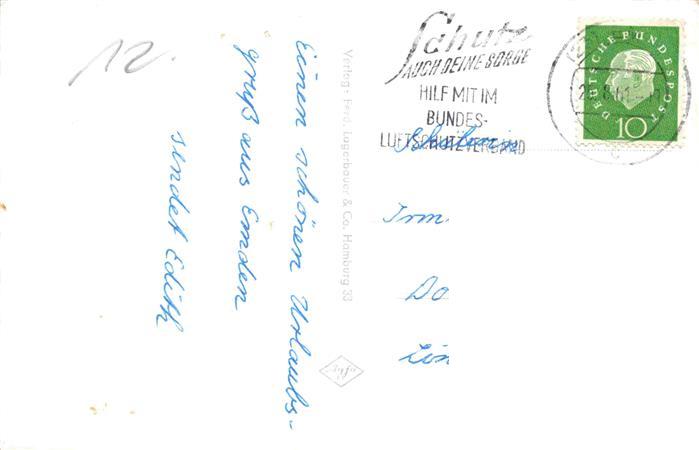 12.
Einen schönen Urlaubs-
gruß aus Emden
sendet Edith
Verlag: Ferd. Lagerbauer & Co. Hamburg 33
Schutz
AUCH DEINE SORGE
HILF MIT IM
BUNDES-
LUFTSCHUTZVERBAND
DEUTSCHE BUNDESPOST
10
Irm.
Do
Lin